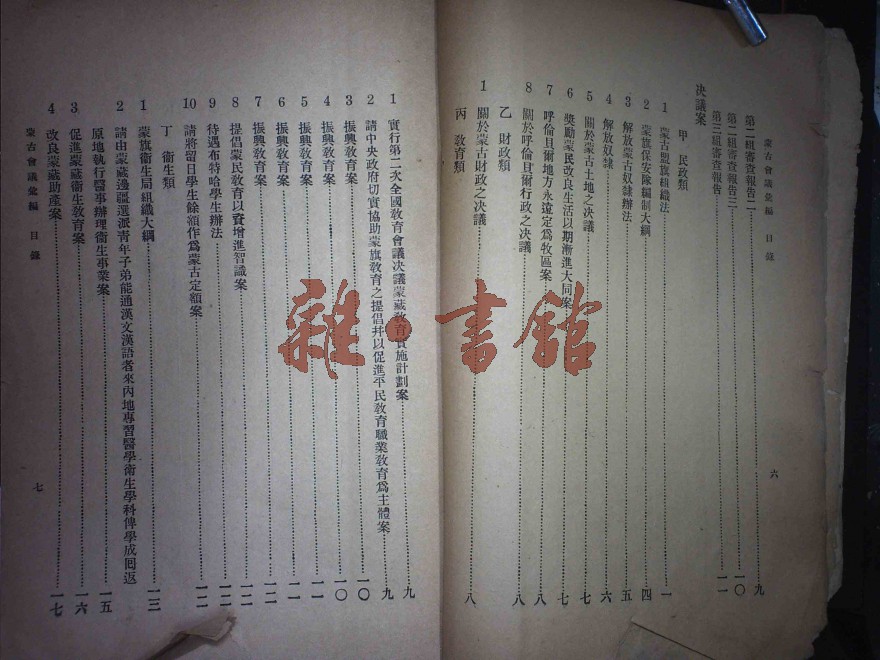 蒙古會議彙編　目錄
六
第二組審查報告二……九
第二組審查報告三……一〇
第三組審查報告……一一
決議案
甲　民政類
1　蒙古盟旗組織法……一
2　蒙旗保安隊編制大綱……四
3　解放蒙古奴隸辦法……五
4　解放奴隸……六
5　關於蒙古土地之決議……七
6　獎勵蒙民改良生活以期漸進大同案……七
7　呼倫貝爾地方永遠定爲牧區案……八
8　關於呼倫貝爾行政之決議……八
乙　財政類
1　關於蒙古財政之決議……八
丙　敎育類
1　實行第二次全國敎育會議決議蒙藏敎育實施計劃案……九
2　請中央政府切實協助蒙旗敎育之提倡幷以促進平民敎育職業敎育爲主體案……九
3　振興敎育案……一〇
4　振興敎育案……一〇
5　振興敎育案……一一
6　振興敎育案……一一
7　振興敎育案……一二
8　提倡蒙民敎育以資增進智識案……一二
9　待遇布特哈學生辦法……一二
10　請將留日學生餘額作爲蒙古定額案……一二
丁　衞生類
1　蒙旗衞生局組織大綱……一三
2　請由蒙藏邊疆選派靑年子弟能通漢文漢語者來內地專習醫學衞生學科俾學成囘返
原地執行醫事辦理衞生事業案……一五
3　促進蒙藏衞生敎育案……一六
4　改良蒙藏助產案……一七
蒙古會議彙編　目錄
七
雜·書館